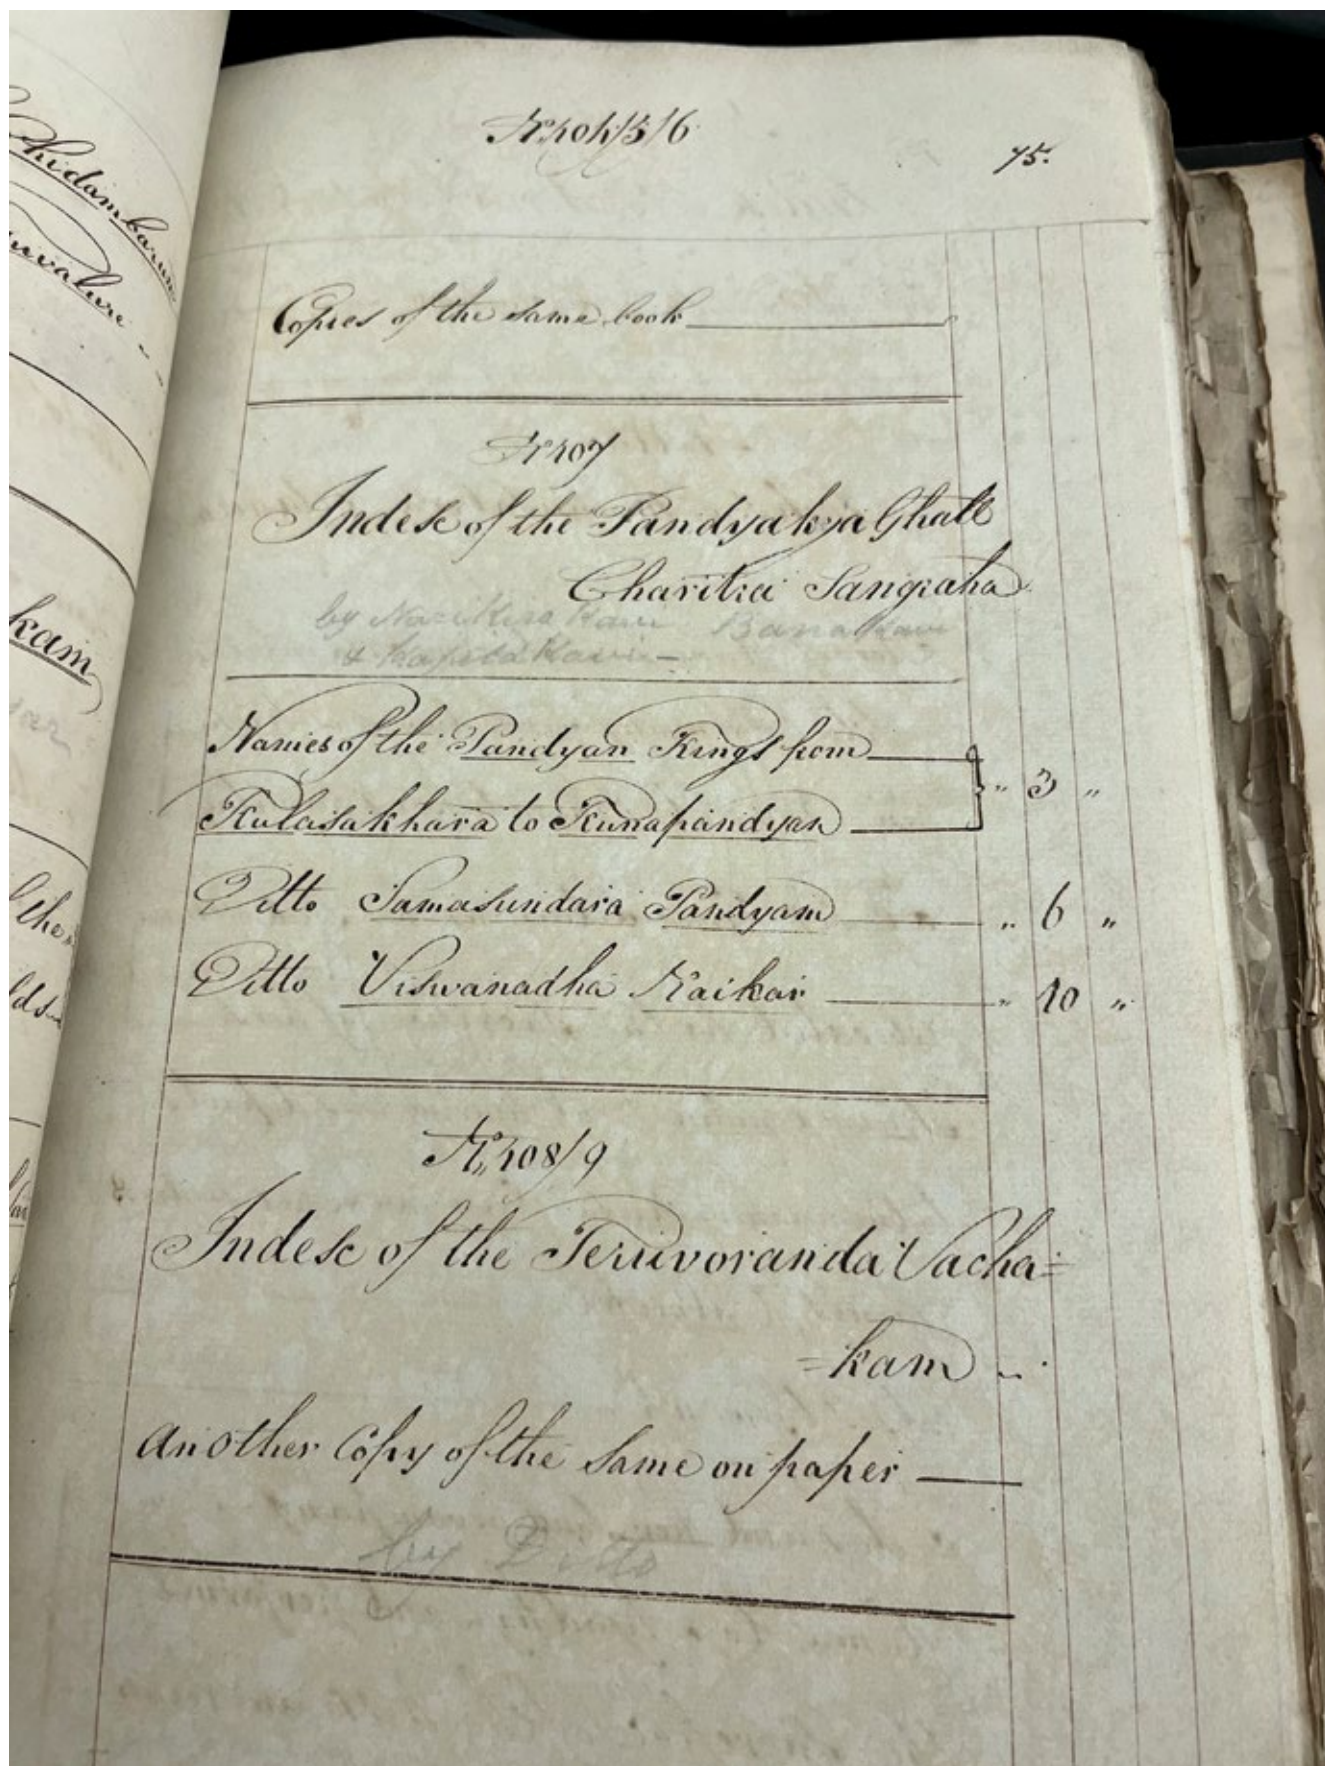 Chidambaram
75.
Copies of the same book
No 107
Index of the Pandyakya Ghatt
Charitra Sangraha
by Kavi Bana Kavi
& Kapila Kavi -
Names of the Pandyan Kings from
Kulasakhara to Kunapandyan " 3 "
Ditto Samasundara Pandyam " 6 "
Ditto Viswanadha Naikar " 10 "
No 108/9
Index of the Teruvoranda Vacha=
=kam
another Copy of the Same on paper
by Ditto
kam